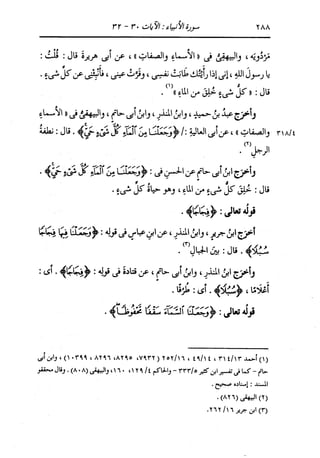 ٢٨٨ سورة الأنبياء : الآيات ٣٠ - ٣٢
مَرْدُويَه ، والبيهقىُّ فى « الأسماءِ والصفاتِ » ، عن أبى هريرةَ قال : قلتُ :
يا رسولَ اللهِ ، إنى إذا رأيتُك طابَت نفسِى ، وقرَّت عينى ، فأنبِئْنى عن كلِّ شيءٍ .
قال : « كلُّ شيءٍ خُلِق من الماءِ »(١) .
وأخرَج عبدُ بنُ حميدٍ ، وابنُ المنذرِ ، وابنُ أبى حاتمٍ ، والبيهقىُّ فى « الأسماءِ
٣١٨/٤ والصفاتِ » ، عن أبى العاليةِ : / ﴿ وَجَعَلْنَا مِنَ ٱلْمَآءِ كُلَّ شَىْءٍ حَيٍّ ﴾ . قال : نطفةُ
الرجلِ(٢) .
وأخرَج ابنُ أبى حاتمٍ عن الحسنِ فى : ﴿ وَجَعَلْنَا مِنَ ٱلْمَآءِ كُلَّ شَىْءٍ حَيٍّ ﴾ .
قال : خُلِق كلُّ شيءٍ من الماءِ ، وهو حياةُ كلِّ شيءٍ .
قولُه تعالى : ﴿ فِجَاجًا ﴾ .
أخرَج ابنُ جريرٍ ، وابنُ المنذرِ ، عن ابنِ عباسٍ فى قولِه : ﴿ وَجَعَلْنَا فِيهَا فِجَاجًا
سُبُلًا ﴾ . قال : بينَ الجبالِ(٣) .
وأخرَج ابنُ المنذرِ ، وابنُ أبى حاتمٍ ، عن قتادةَ فى قولِه : ﴿ فِجَاجًا ﴾ . أى :
أعلامًا ، ﴿ سُبُلًا ﴾ . أى : طرُقًا .
قولُه تعالى : ﴿ وَجَعَلْنَا ٱلسَّمَآءَ سَقْفًا مَّحْفُوظًا ﴾ .
(١) أحمد ٣١٤/١٣ ، ٤٩/١٤ ، ٢٥٢/١٦ (٧٩٣٢ ، ٨٢٩٥ ، ٨٢٩٦ ، ١٠٣٩٩) ، وابن أبى
حاتم - كما فى تفسير ابن كثير ٣٣٣/٥ - والحاكم ١٢٩/٤ ، ١٦٠ ، والبيهقى (٨٠٨) . وقال محققو
المسند : إسناده صحيح .
(٢) البيهقى (٨٢٦) .
(٣) ابن جرير ٢٦٢/١٦ .